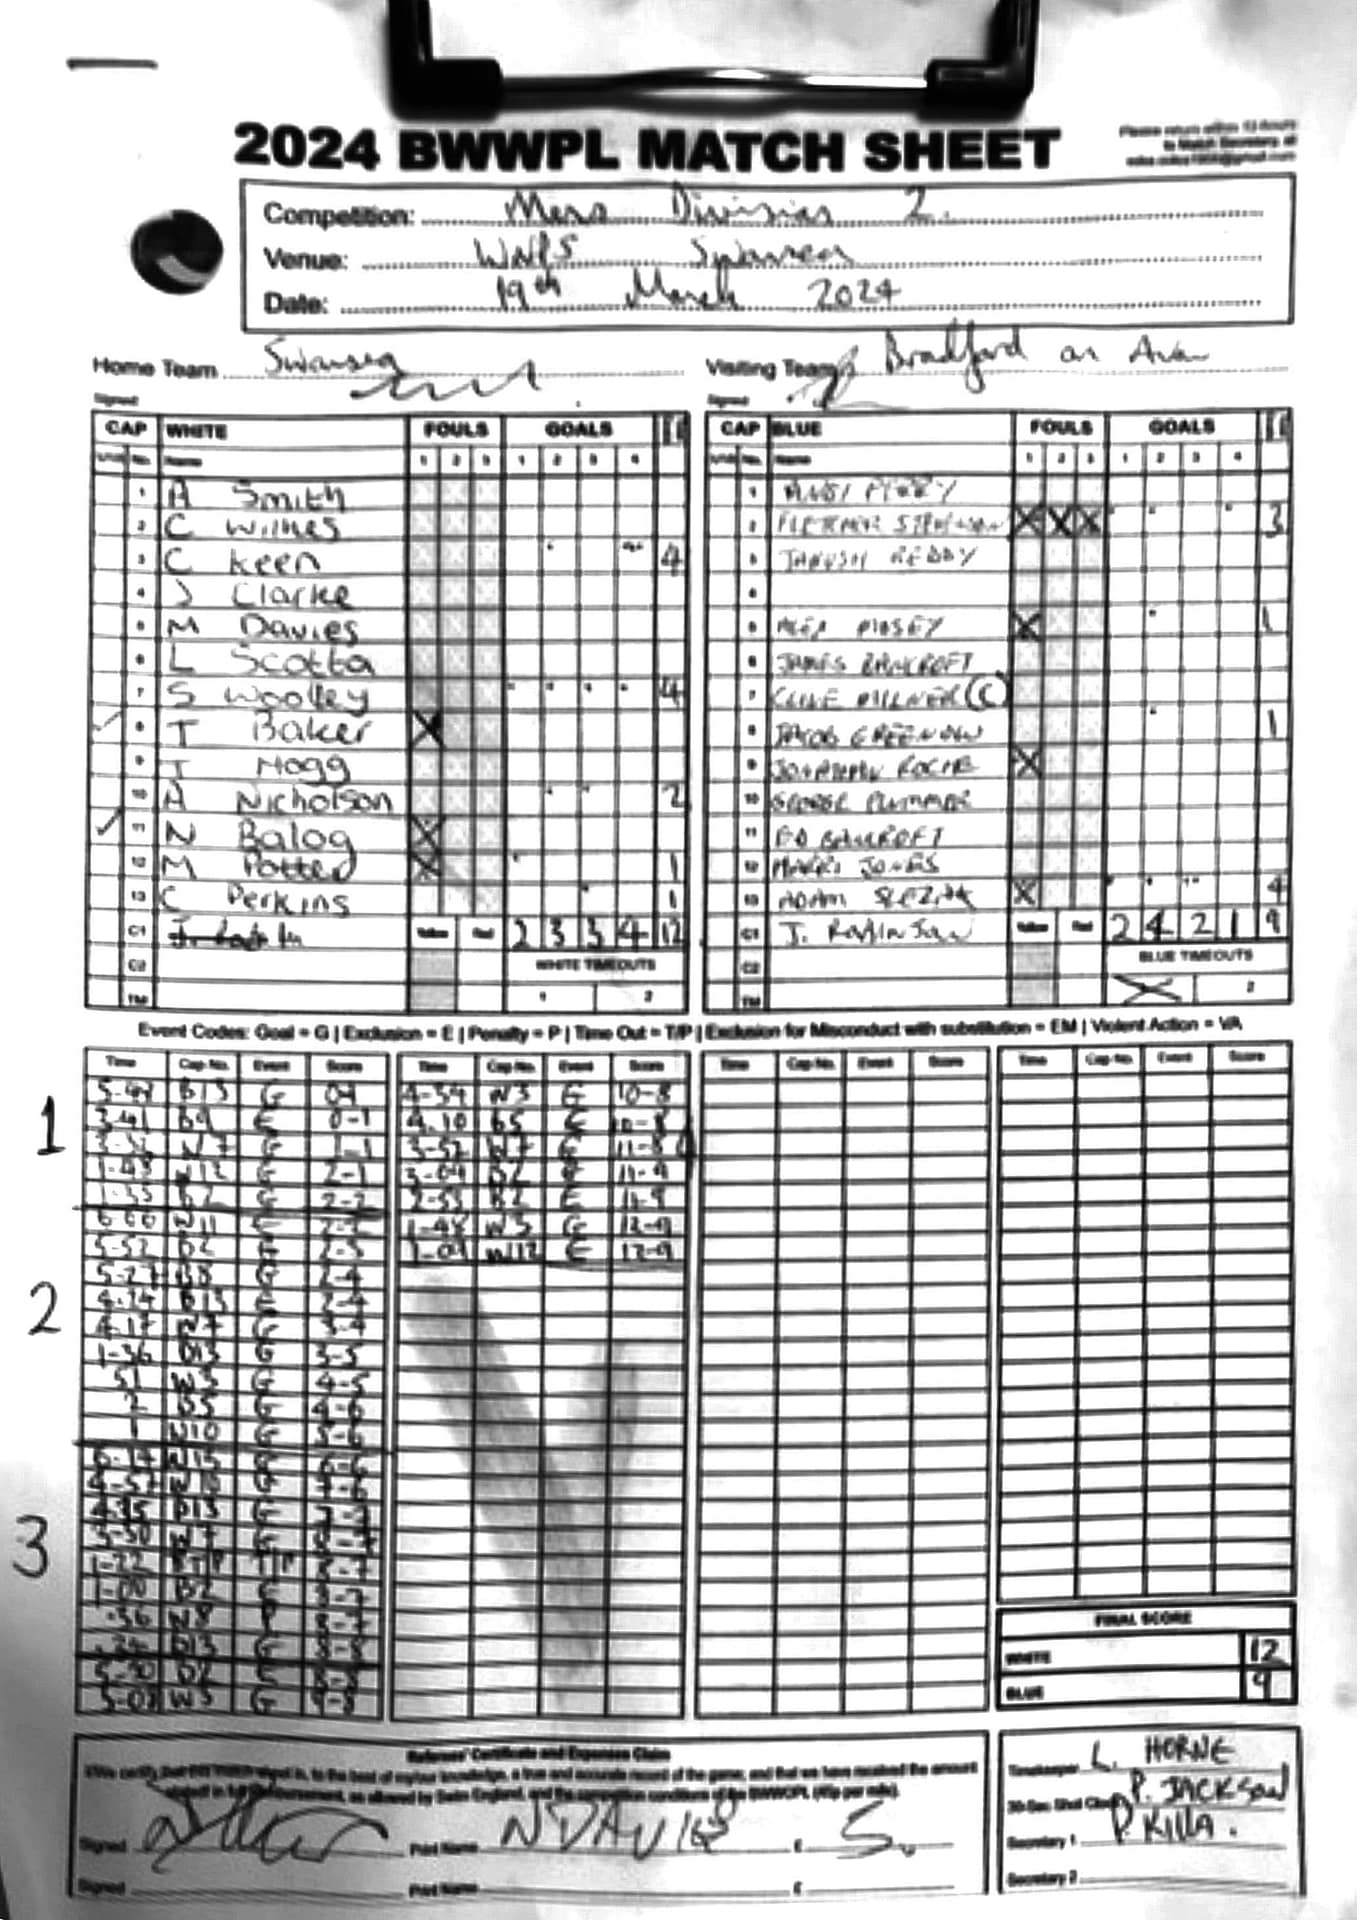 2024 BWWPL MATCH SHEET
Please return within 12 hours
to Match Secretary at
Competition: Mens Division 2.
Venue: WNPS Swansea
Date: 19th March 2024
Home Team Swansea
Visiting Team Bradford on Avon
Signed
Signed
CAP WHITE FOULS GOALS
No. Name 1 2 3 1 2 3 4
1 A Smith
2 C Wilkes
3 C Keen 4
4 J Clarke
5 M Davies
6 L Scotta
7 S Woolley 4
8 T Baker X
9 T Hogg
10 A Nicholson 2
11 N Balog X
12 M Potter X 1
13 C Perkins 1
C1 2 3 3 4 12
C2 WHITE TIMEOUTS
TM 1 2
CAP BLUE FOULS GOALS
No. Name 1 2 3 1 2 3 4
1 PERRY
2 FLETCHER X X X 3
3 REDDY
4
5 ALEX X 1
6 JAMES BANCROFT
7 CLIVE MILNER (C)
8 JACOB GREENOW 1
9 JONATHAN ROCHE X
10 GEORGE PLUMMER
11 ED BANCROFT
12 HARRI JONES
13 ADAM X 4
C1 J. 2 4 2 1 9
C2 BLUE TIMEOUTS
TM X 2
Event Codes: Goal = G | Exclusion = E | Penalty = P | Time Out = T/P | Exclusion for Misconduct with substitution = EM | Violent Action = VA
Time Cap No. Event Score
1
5-48 B13 G 0-1
3-41 B9 E 0-1
W7 G 1-1
1-48 W12 G 2-1
1-35 B2 G 2-2
2
6-00 W11 E 2-2
5-52 B2 G 2-3
5-27 B8 G 2-4
4-24 B13 E 2-4
4-17 W7 G 3-4
1-36 B13 G 3-5
51 W3 G 4-5
2 B5 G 4-6
1 W10 G 5-6
3
6-17 W13 G 6-6
4-57 W10 G 7-6
4-35 B13 G 7-7
3-30 W7 G 8-7
1-22 BTP T/P 8-7
1-00 B2 E 8-7
-36 W8 8-7
B13 G 8-8
B2 E 8-8
5-07 W3 G 9-8
Time Cap No. Event Score
4-39 W3 G 10-8
4.10 B5 E 10-8
3-57 W7 G 11-8
3-09 B2 G 11-9
2-53 B2 E 11-9
1-48 W3 G 12-9
1-09 W12 E 12-9
Time Cap No. Event Score
Time Cap No. Event Score
FINAL SCORE
WHITE 12
BLUE 9
Referees' Certificate and Expenses Claim
I/We certify that this match sheet is, to the best of my/our knowledge, a true and accurate record of the game; and that we have received the amount
stated in full reimbursement, as allowed by Swim England, and the competition conditions of the BWWPL (45p per mile).
Signed Print Name N DAVIES £ 5.
Signed Print Name £
Timekeeper L. HORNE
30-Sec. Shot Clock P. JACKSON
Secretary 1 P. KILLA.
Secretary 2